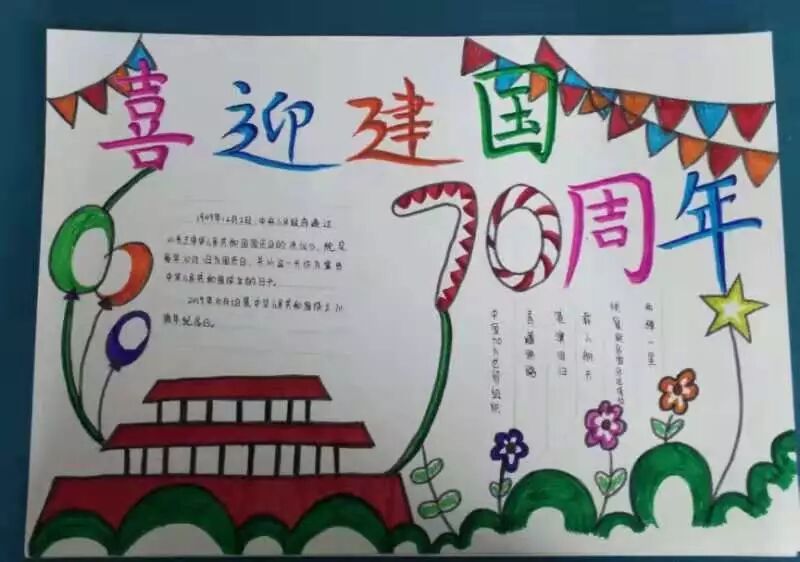 喜迎建国
70周年
1949年12月2日,中央人民政府通过
《关于中华人民共和国国庆日的决议》,规定
每年10月1日为国庆日,并以这一天作为宣告
中华人民共和国成立的日子。
2019年10月1日是中华人民共和国成立70
周年纪念日。
两弹一星
载人航天
港澳回归
青藏铁路
中国加入世贸组织